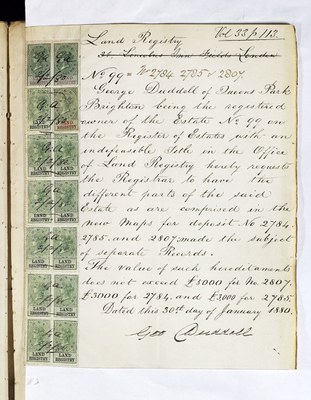 Vol 33 p. 113.
Land Registry
34 Lincolns Inn Fields London
No 99 = No 2784. 2785 & 2807.
George Duddell of Queens Park
Brighton being the registered
owner of the Estate No 99 on
the Register of Estates with an
indefensible Title in the Office
of Land Registry hereby requests
the Registrar to have the
different parts of the said
Estate as are comprised in the
new Maps for deposit No 2784.
2785. and 2807 made the subject
of separate Records.
The value of such hereditaments
does not exceed £8000 for No 2807.
£3000 for 2784. and £3000 for 2785.
Dated this 30th day of January 1880.
Geo Duddell
LAND REGISTRY
LAND REGISTRY
LAND REGISTRY
LAND REGISTRY
LAND REGISTRY
LAND REGISTRY